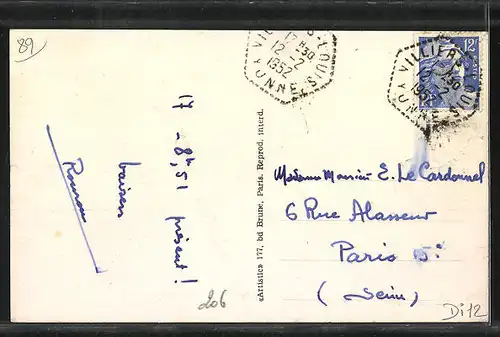 89
VILLIERS-LOUIS
17 H 30
12-2
1952
YONNE
12
VILLIERS-LOUIS
12-2
1952
YONNE
17 - 8h,51 présent !
baisers
«Artistica 177, bd Brune, Paris. Reprod. interd.
Madame Monsieur E. Le Cardonnel
6 Rue Alasseur
Paris
(Seine)
206
Di12